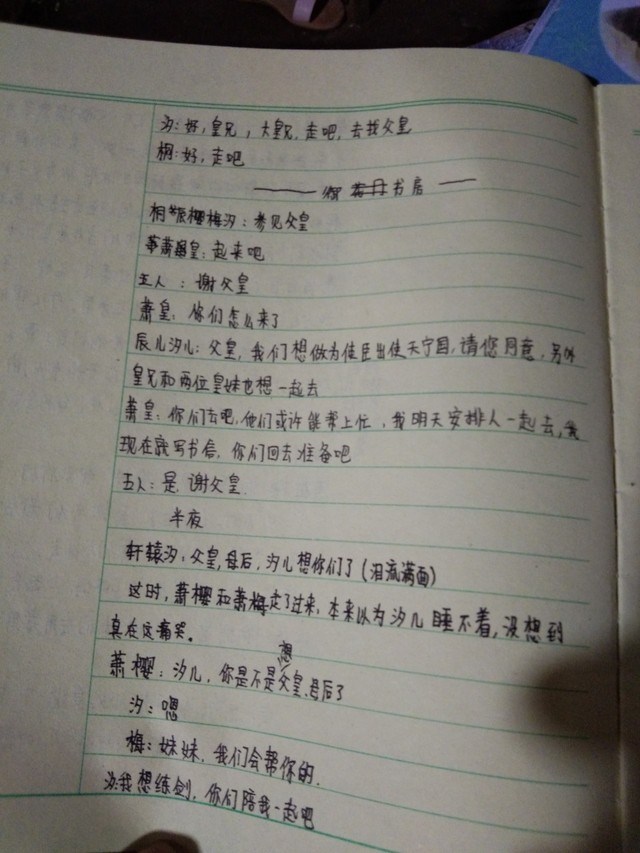 汐:好,皇兄,大皇兄,走吧,去找父皇
桐:好,走吧
御书房
桐辰樱梅汐:参见父皇
萧皇:起来吧
五人:谢父皇
萧皇:你们怎么来了
辰儿汐儿:父皇,我们想做为使臣出使天宁国,请您同意,另外
皇兄和两位皇妹也想一起去
萧皇:你们去吧,他们或许能帮上忙,我明天安排人一起去,我
现在就写书信,你们回去准备吧
五人:是,谢父皇.
半夜
轩辕汐:父皇,母后,汐儿想你们了(泪流满面)
这时,萧樱和萧梅走了过来,本来以为汐儿睡不着,没想到
真在这痛哭。
萧樱:汐儿,你是不是想父皇.母后了
汐:嗯
梅:妹妹,我们会帮你的.
汐:我想练剑,你们陪我一起吧